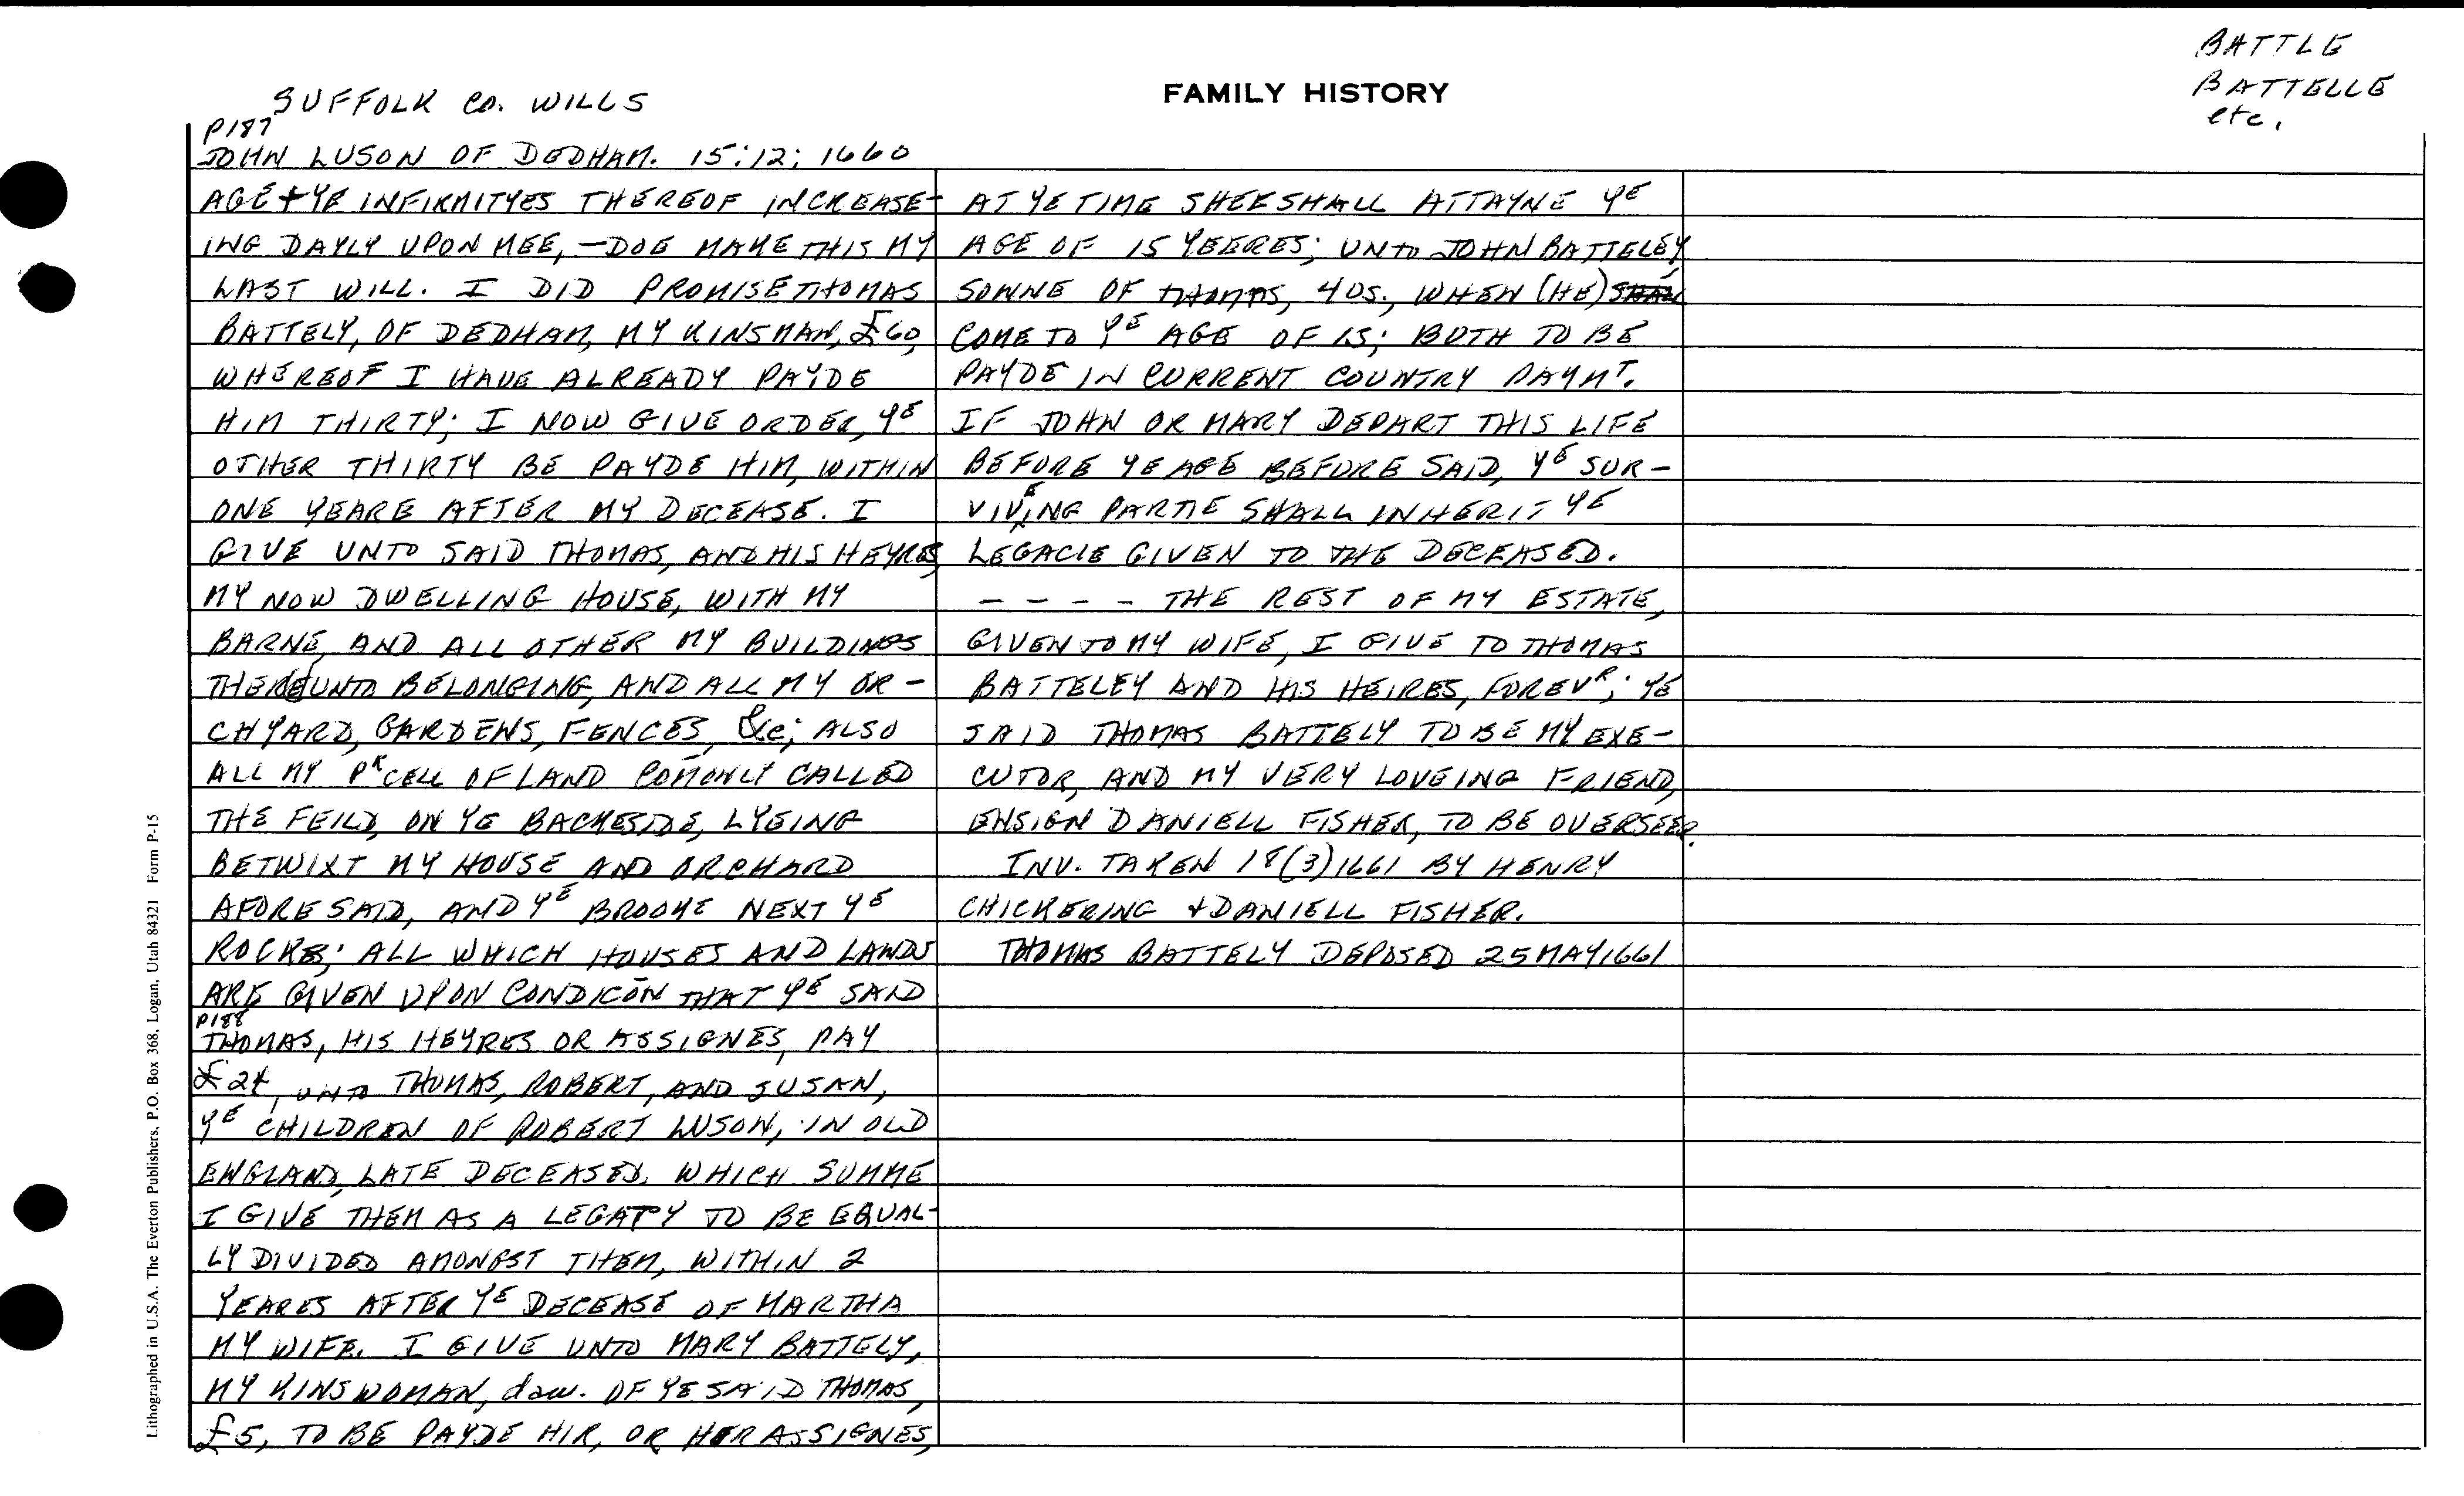 BATTLE
BATTELLE
etc.
FAMILY HISTORY
SUFFOLK CO. WILLS
P187
JOHN LUSON OF DEDHAM. 15:12:1660
AGE + YE INFIRMITYES THEREOF INCREASE-
ING DAYLY UPON MEE, — DOE MAKE THIS MY
LAST WILL. I DID PROMISE THOMAS
BATTELY, OF DEDHAM, MY KINSMAN, £60,
WHEREOF I HAVE ALREADY PAYDE
HIM THIRTY; I NOW GIVE ORDER, YE
OTHER THIRTY BE PAYDE HIM, WITHIN
ONE YEARE AFTER MY DECEASE. I
GIVE UNTO SAID THOMAS, AND HIS HEYRES,
MY NOW DWELLING HOUSE, WITH MY
BARNE, AND ALL OTHER MY BUILDINGS
THEREUNTO BELONGING, AND ALL MY OR-
CHYARD, GARDENS, FENCES, &c; ALSO
ALL MY PRCELL OF LAND COMONLY CALLED
THE FEILD, ON YE BACKESIDE, LYEING
BETWIXT MY HOUSE AND ORCHARD
AFORESAID, AND YE BROOKE NEXT YE
ROCKS; ALL WHICH HOUSES AND LANDS
ARE GIVEN UPON CONDICŌN THAT YE SAID
P188
THOMAS, HIS HEYRES OR ASSIGNES, PAY
£24, UNTO THOMAS, ROBERT, AND SUSAN,
YE CHILDREN OF ROBERT LUSON, IN OLD
ENGLAND, LATE DECEASED, WHICH SUMME
I GIVE THEM AS A LEGACY TO BE EQUAL-
LY DIVIDED AMONGST THEM, WITHIN 2
YEARES AFTER YE DECEASE OF MARTHA
MY WIFE. I GIVE UNTO MARY BATTELY,
MY KINSWOMAN, daw. OF YE SAID THOMAS,
£5, TO BE PAYDE HIR, OR HER ASSIGNES,
AT YE TIME SHEE SHALL ATTAYNE YE
AGE OF 15 YEERES; UNTO JOHN BATTELEY,
SONNE OF THOMAS, 40S., WHEN (HE) SHALL
COME TO YE AGE OF 15; BOTH TO BE
PAYDE IN CURRENT COUNTRY PAYMT.
IF JOHN OR MARY DEPART THIS LIFE
BEFORE YE AGE BEFORE SAID, YE SUR-
VIVEING PARTIE SHALL INHERIT YE
LEGACIE GIVEN TO THE DECEASED.
– – – – THE REST OF MY ESTATE,
GIVEN TO MY WIFE, I GIVE TO THOMAS
BATTELEY AND HIS HEIRES, FOREVR; YE
SAID THOMAS BATTELY TO BE MY EXE-
CUTOR, AND MY VERY LOVEING FRIEND,
ENSIGN DANIELL FISHER, TO BE OVERSEER.
INV. TAKEN 18(3)1661 BY HENRY
CHICKERING + DANIELL FISHER.
THOMAS BATTELY DEPOSED 25 MAY 1661
Lithographed in U.S.A. The Everton Publishers, P.O. Box 368, Logan, Utah 84321 Form P-15